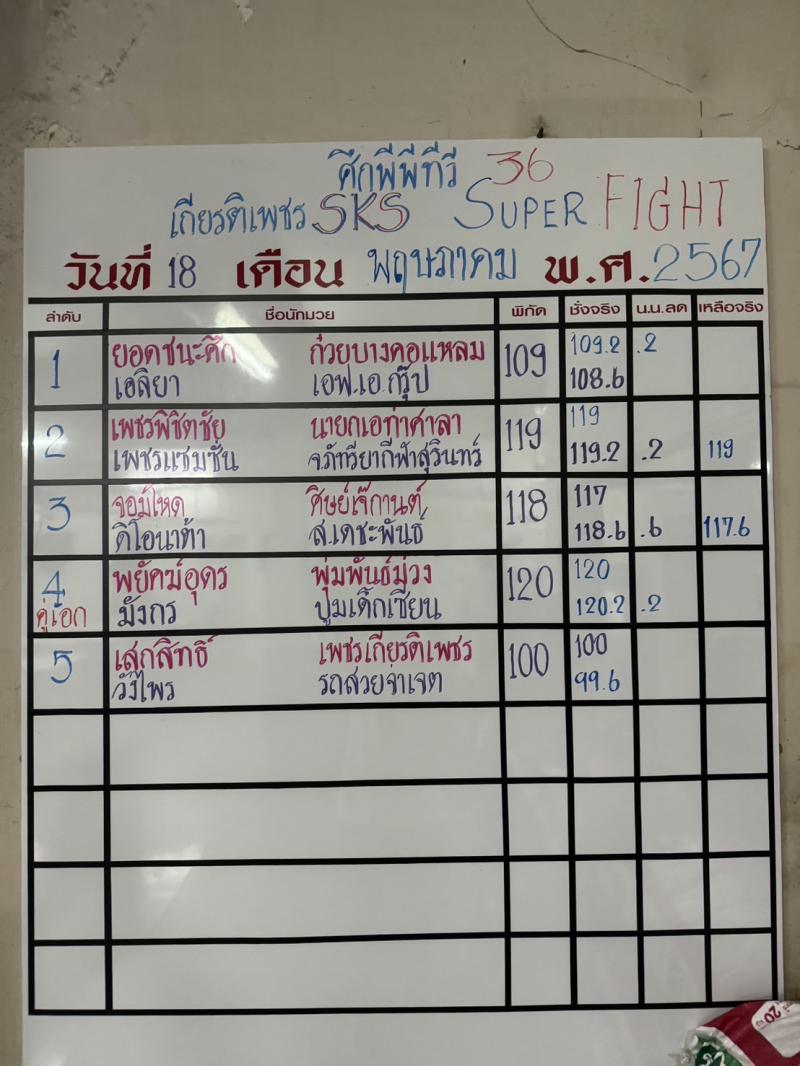 ศึกพีพีทีวี 36
เกียรติเพชร SKS SUPER FIGHT
วันที่ 18 เดือน พฤษภาคม พ.ศ. 2567
ลำดับ ชื่อนักมวย พิกัด ชั่งจริง น.น.ลด เหลือจริง
1 ยอดชนะศึก ก๋วยบางคอแหลม 109 109.2 .2
เอลิยา เอฟ.เอ.กรุ๊ป 108.6
2 เพชรพิชิตชัย นายกเอท่าศาลา 119 119
เพชรแชมชั่น จ.ภัทรียากีฬาสุรินทร์ 119.2 .2 119
3 จอมโหด ศิษย์เจ๊กานต์ 118 117
ดิโอนาต้า ส.เดชะพันธ์ 118.6 .6 117.6
4 พยัคฆ์อุดร พุ่มพันธ์ม่วง 120 120
คู่เอก มังกร ปูมเด็กเซียน 120.2 .2
5 เสกสิทธิ์ เพชรเกียรติเพชร 100 100
วังไพร รถสวยจ่าเจต 99.6
20